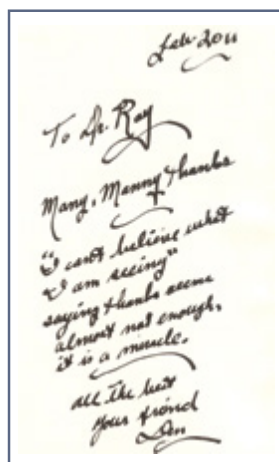 Feb. 2011
To Dr. Ray
Many, Manny thanks
"I can't believe what
I am seeing"
saying thanks seem
almost not enough,
it is a miracle.
all the best
your friend